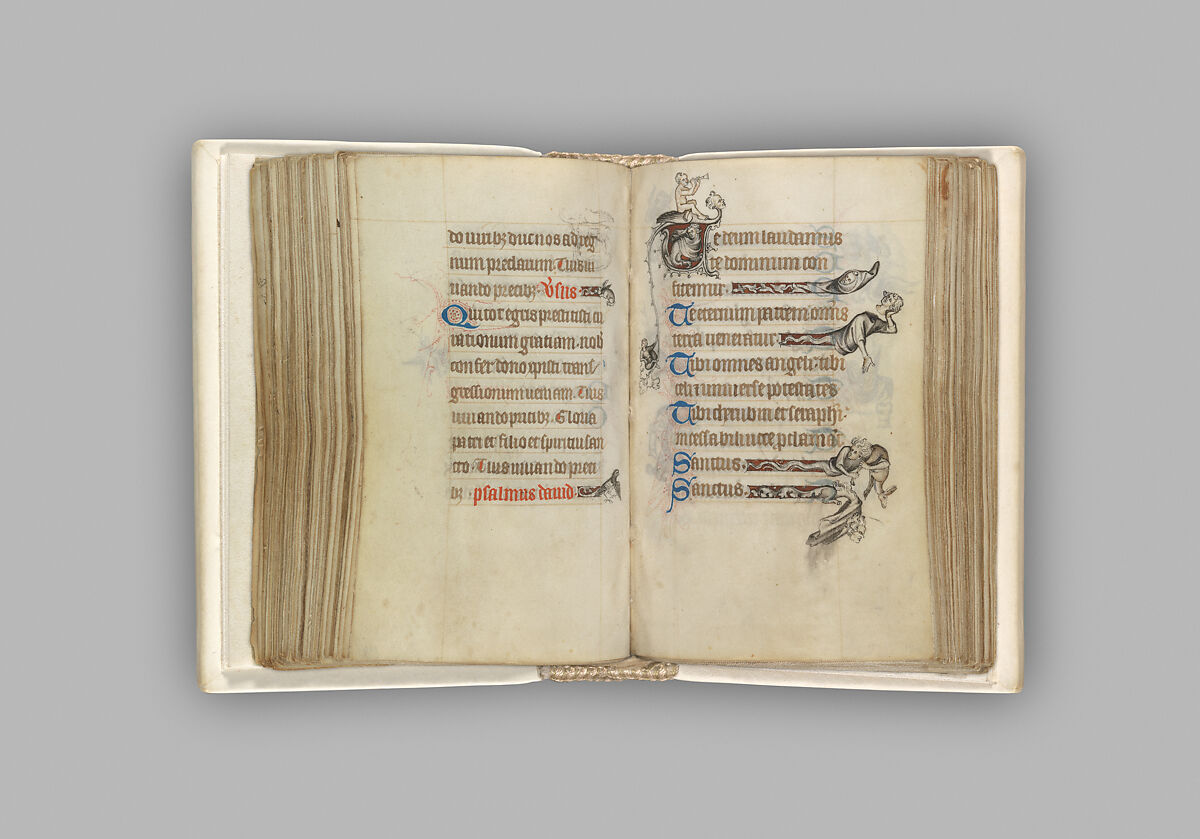 do viribz duc nos ad reg
num preclarum. Tuis iu
uando precibz. Vsus
Qui tot egris cu
rationum gratiam. nob
confer dono xpisti trans
gressionum ueniam. Tuis
iuuando pricibz. Gloria
patri et filio et spiritui san
cto. Tuis iuuando preci
bz psalmus dauid.
Te deum laudamus
te dominum con
fitemur.
Te eternum patrem omnis
terra ueneratur.
Tibi omnes angeli. tibi
celi et uniuerse potestates
Tibi cherubin et seraphi
incessabili uoce pclamat
Sanctus.
Sanctus.